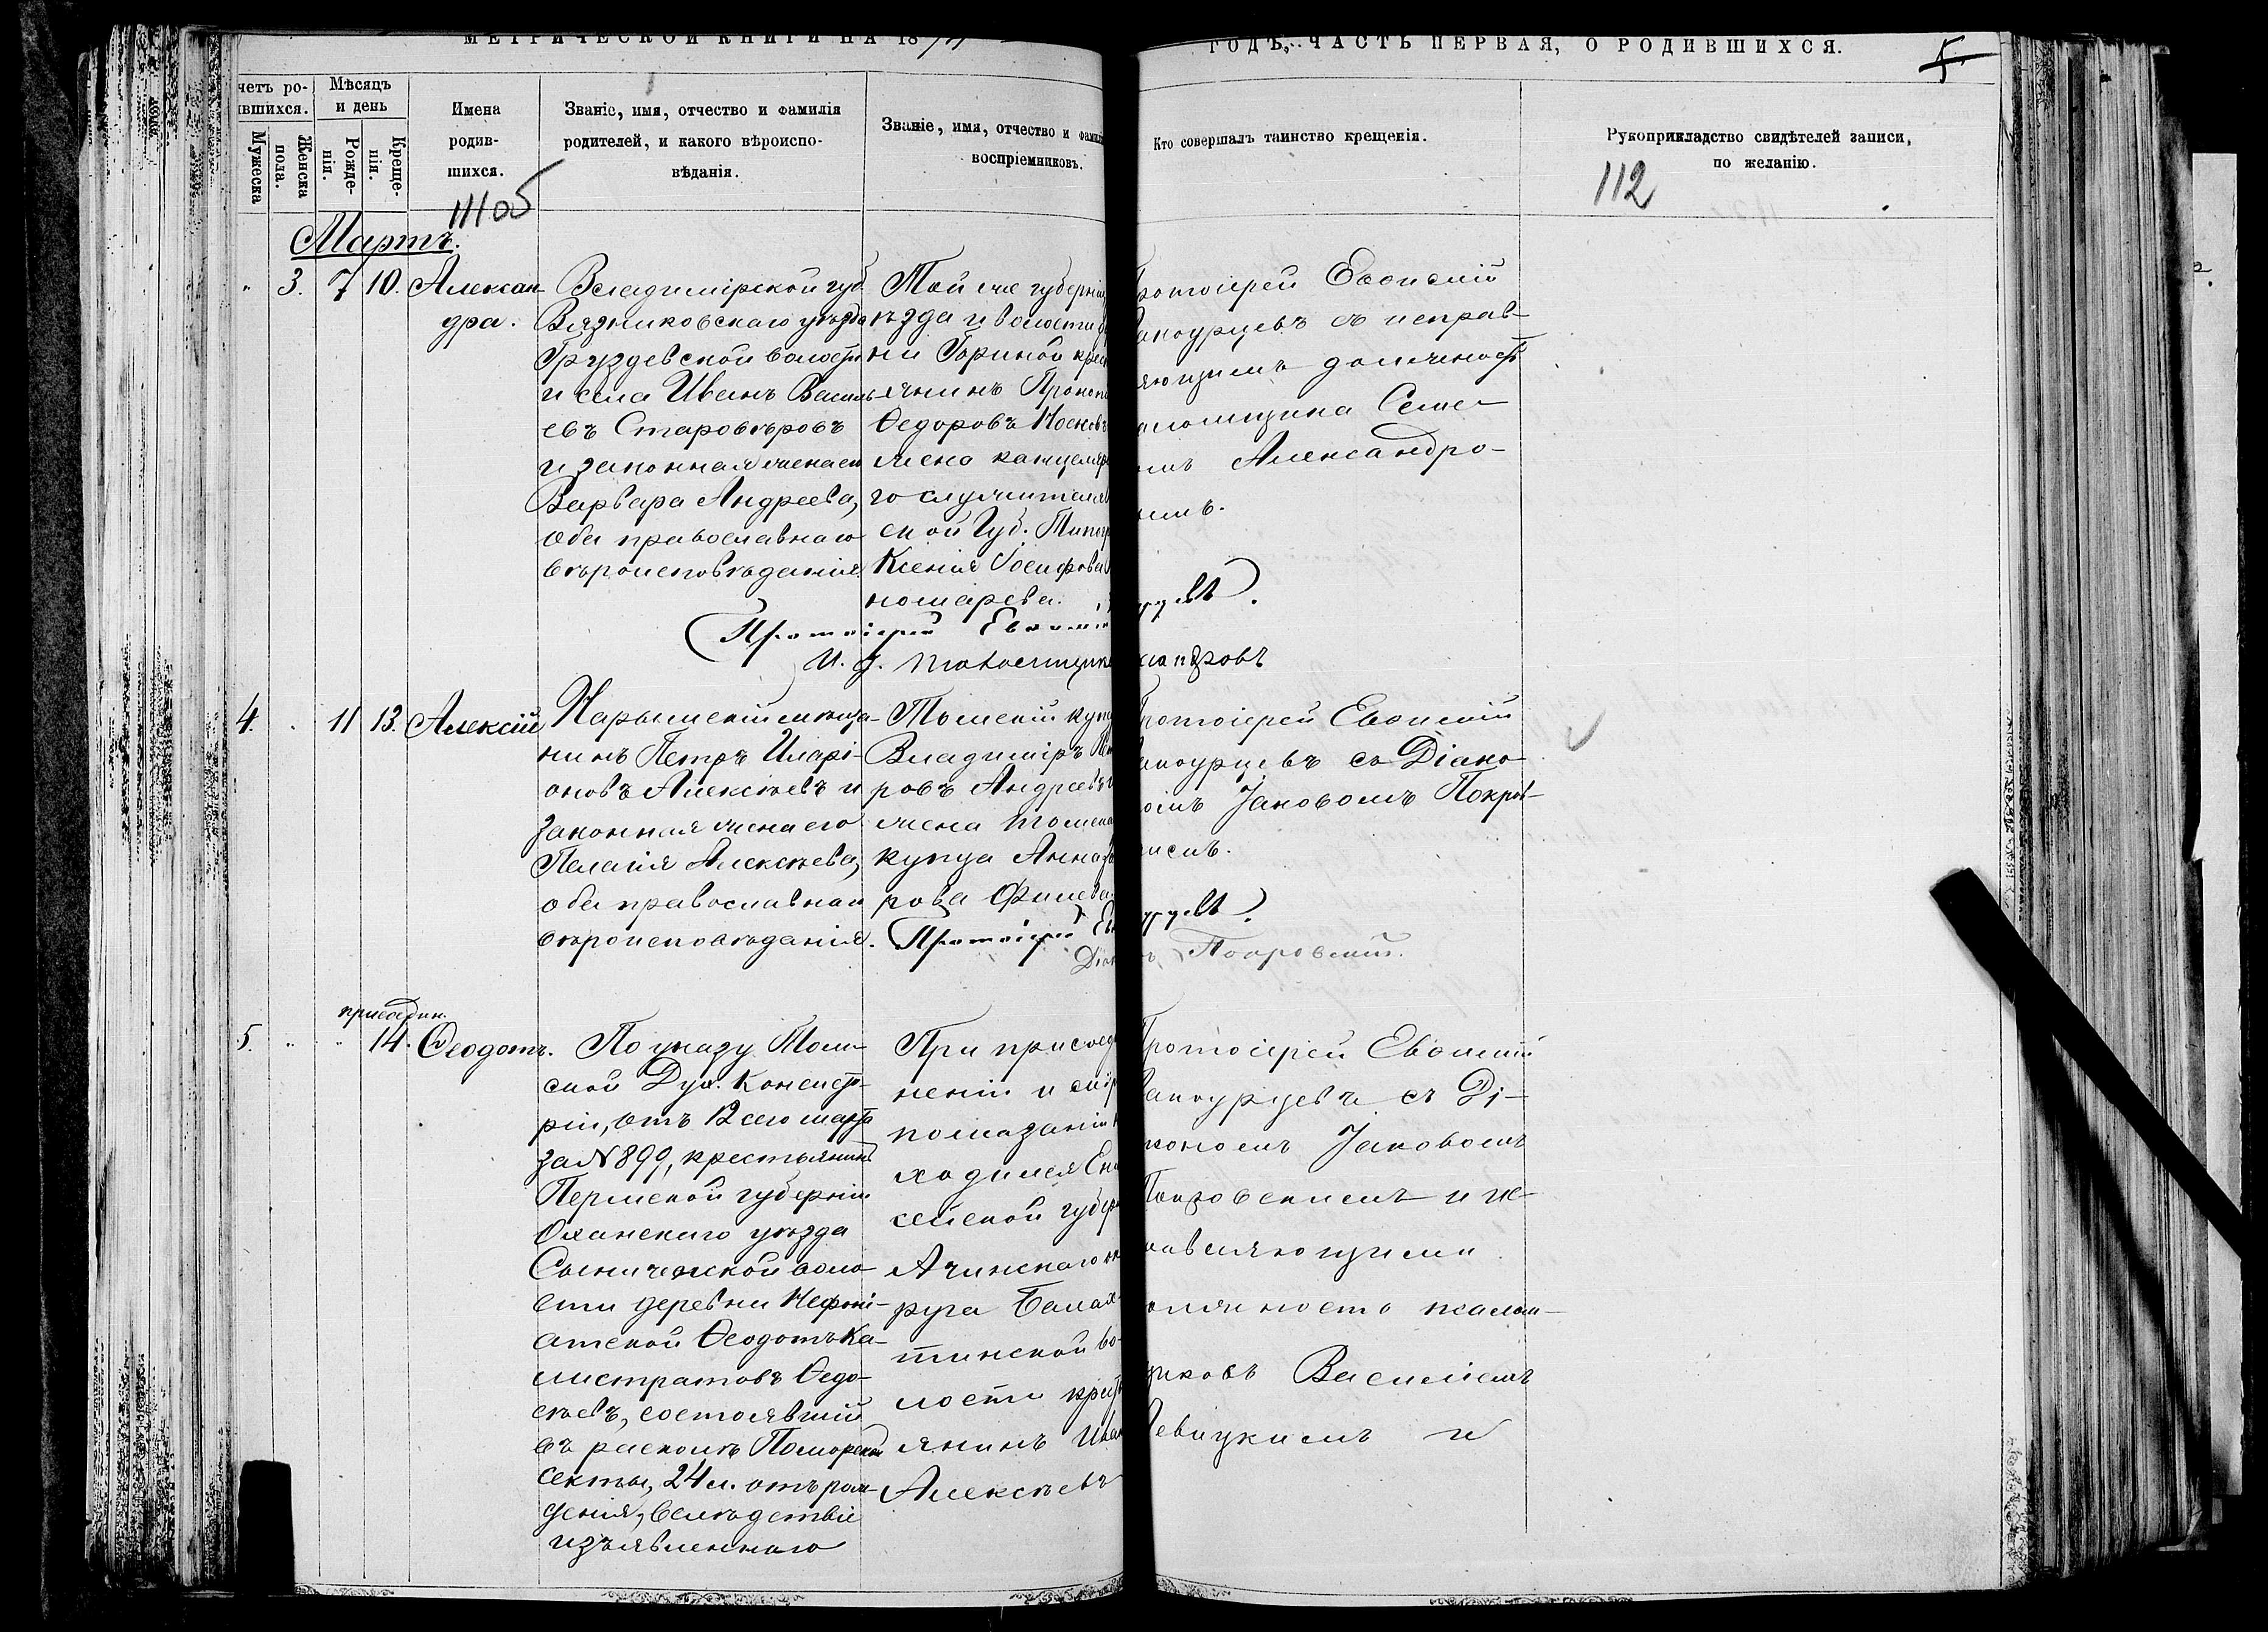 МЕТРИЧЕСКОЙ КНИГИ НА 18
ГОДЪ, ЧАСТЬ ПЕРВАЯ, О РОДИВШИХСЯ.
5.
четъ ро-
вшихся.
Мужеска
Женска
пола.
Мѣсяцъ
и день
Рожде-
нія.
Креще-
нія.
Имена
родив-
шихся.
Званіе, имя, отчество и фамилія
родителей, и какого вѣроиспо-
вѣданія.
Званіе, имя, отчество и фамил
воспріемниковъ.
Кто совершалъ таинство крещенія.
Рукоприкладство свидѣтелей записи,
по желанію.
112
Мартъ.
3. 7 10. Алексан-
дра.
Владимірской губ
Вязниковскаго уѣзда
Груздевской волости
и села Иванъ Василь-
евъ Старовѣровъ
и законная жена его
Варвара Андреева,
оба православнаго
вѣроисповѣданія
Той же губерніи,
ѣзда и волости
ни Гориной крес
янинъ Прокоп
Ѳедоровъ
жена канцеляр
го служителя
ской Губ. Типогр
Ксенія Іосифова
номарева.
ротоіерей Евѳимій
съ исправ-
яющимъ должность
аломщика Семе-
омъ Александро-
ымъ.
Протоіерей Евѳимій
И. д. псаломщика
сандровъ
4. 11 13. Алексій
Нарымскій мѣща-
нинъ Петръ Иларі-
оновъ Алексѣевъ и
законная жена его
Пелагія Алексѣева,
оба православнаго
вѣроисповѣданія.
Томскій купе
Владиміръ Пет
ровъ Андреевъ и
жена томска
купца Анна
рова Филева.
ротоіерей Евѳимій
съ Діако-
номъ Іаковомъ Покров-
скимъ.
Протоіерей Ев
Діак
ъ Покровскій.
присоедин.
5. 14. Ѳеодотъ.
По указу Том-
ской Дух. Консисто-
ріи, отъ 12 сего марта
за № 899, крестьянинъ
Пермской губерніи
Оханскаго уѣзда
воло-
сти деревни
Ѳеодотъ Ка-
листратовъ Ѳедо-
сѣевъ, состоявшій
въ расколѣ Поморской
секты, 24 л. отъ рож-
денія, вслѣдствіе
изъявленнаго
При присоеди
неніи и мѵр
помазаніи н
ходился Ени
сейской губер
Ачинскаго ок
руга Балах-
тинской во-
лости крест
янинъ Иван
Алексѣевъ
ротоіерей Евѳимій
съ Ді-
кономъ Іаковомъ
Покровскимъ и ис-
равляющими
олжность псалом-
щиковъ Василіемъ
Левицкимъ и